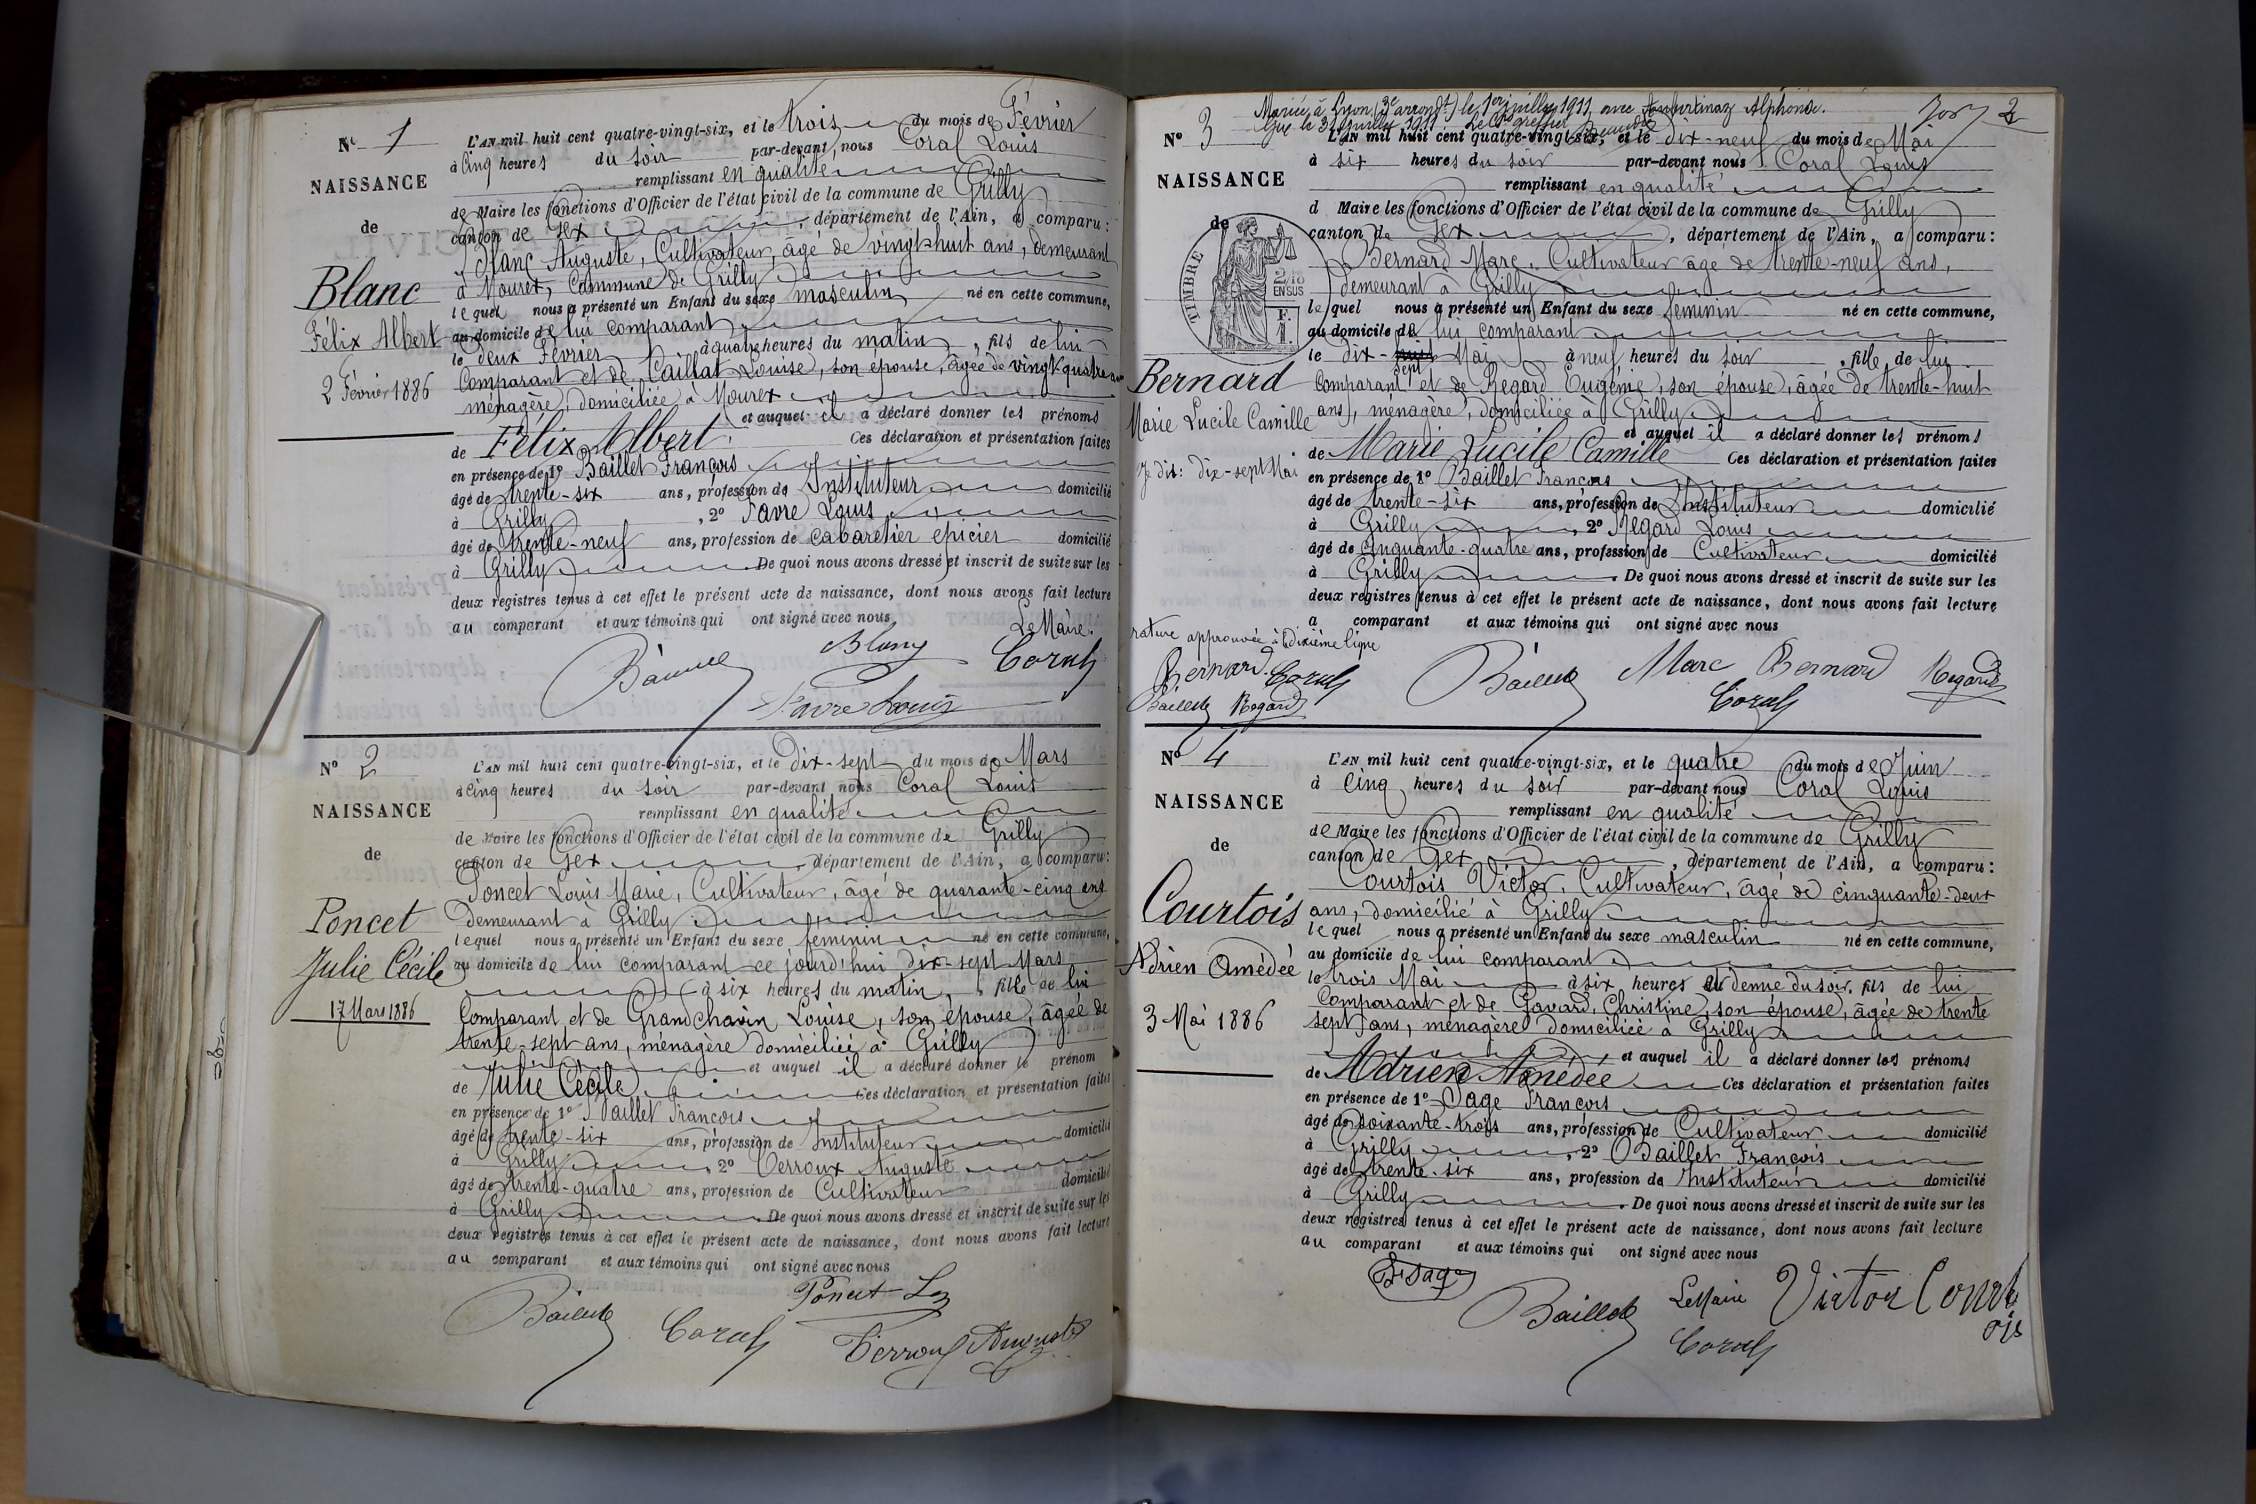 N° 1
NAISSANCE
de
Blanc
Félix Albert
2 Février 1886
L'AN mil huit cent quatre-vingt-six, et le trois du mois de Février
à cinq heures du soir par-devant nous Coral Louis
remplissant en qualité
de Maire les fonctions d'Officier de l'état civil de la commune de Grilly
canton de Gex, département de l'Ain, a comparu:
Blanc Auguste, Cultivateur, âgé de vingt-huit ans, demeurant
à Mourex, Commune de Grilly
lequel nous a présenté un Enfant du sexe masculin né en cette commune,
au domicile de lui comparant
le deux Février à quatre heures du matin, fils de lui
Comparant et de Caillat Louise, son épouse, âgée de vingt-quatre ans
ménagère, domiciliée à Mourex
et auquel il a déclaré donner les prénoms
de Félix Albert. Ces déclaration et présentation faites
en présence de 1° Baillet François
âgé de trente-six ans, profession de Instituteur domicilié
à Grilly, 2° Favre Louis
âgé de trente-neuf ans, profession de cabaretier épicier domicilié
à Grilly. De quoi nous avons dressé et inscrit de suite sur les
deux registres tenus à cet effet le présent acte de naissance, dont nous avons fait lecture
au comparant et aux témoins qui ont signé avec nous
Le Maire.
Blanc
Baillet Coral
Favre Louis
N° 2
NAISSANCE
de
Poncet
Julie Cécile
17 Mars 1886
L'AN mil huit cent quatre-vingt-six, et le dix-sept du mois de Mars
à cinq heures du soir par-devant nous Coral Louis
remplissant en qualité
de Maire les fonctions d'Officier de l'état civil de la commune de Grilly
canton de Gex, département de l'Ain, a comparu:
Poncet Louis Marie, Cultivateur, âgé de quarante-cinq ans
demeurant à Grilly
lequel nous a présenté un Enfant du sexe feminin né en cette commune,
au domicile de lui comparant ce jourd'hui dix-sept Mars
à six heures du matin, fille de lui
Comparant et de Grandchavin Louise, son épouse, âgée de
trente-sept ans, ménagère domiciliée à Grilly
et auquel il a déclaré donner le prénom
de Julie Cécile Ces déclaration et présentation faites
en présence de 1° Baillet François
âgé de trente-six ans, profession de Instituteur domicilié
à Grilly, 2° Verroux Auguste
âgé de trente-quatre ans, profession de Cultivateur domicilié
à Grilly. De quoi nous avons dressé et inscrit de suite sur les
deux registres tenus à cet effet le présent acte de naissance, dont nous avons fait lecture
au comparant et aux témoins qui ont signé avec nous
Poncet
Baillet Coral Verroux Auguste
2
Mariée à Lyon (3e arrondt) le 1er juillet 1911 avec Alphonse.
N° 3
NAISSANCE
de
TIMBRE
2/10 EN SUS
Bernard
Marie Lucile Camille
Je dit: dix-sept Mai
L'AN mil huit cent quatre-vingt-six, et le dix-neuf du mois de Mai
à six heures du soir par-devant nous Coral Louis
remplissant en qualité
d Maire les fonctions d'Officier de l'état civil de la commune de Grilly
canton de Gex, département de l'Ain, a comparu:
Bernard Marc, Cultivateur âgé de trente-neuf ans,
demeurant à Grilly
lequel nous a présenté un Enfant du sexe feminin né en cette commune,
au domicile de lui comparant
le dix-huit sept Mai à neuf heures du soir, fille de lui
Comparant et de Regard Eugénie, son épouse, âgée de trente-huit
ans, ménagère, domiciliée à Grilly
et auquel il a déclaré donner les prénoms
de Marie Lucile Camille Ces déclaration et présentation faites
en présence de 1° Baillet François
âgé de trente-six ans, profession de Instituteur domicilié
à Grilly, 2° Regard Louis
âgé de cinquante-quatre ans, profession de Cultivateur domicilié
à Grilly. De quoi nous avons dressé et inscrit de suite sur les
deux registres tenus à cet effet le présent acte de naissance, dont nous avons fait lecture
a comparant et aux témoins qui ont signé avec nous
rature approuvée à dixième ligne
Bernard Coral Baillet Marc Bernard Regard
Baillet Regard Coral
N° 4
NAISSANCE
de
Courtois
Adrien Amédée
3 Mai 1886
L'AN mil huit cent quatre-vingt-six, et le quatre du mois de Juin
à cinq heures du soir par-devant nous Coral Louis
remplissant en qualité
de Maire les fonctions d'Officier de l'état civil de la commune de Grilly
canton de Gex, département de l'Ain, a comparu:
Courtois Victor, Cultivateur, âgé de cinquante-deux
ans, domicilié à Grilly
lequel nous a présenté un Enfant du sexe masculin né en cette commune,
au domicile de lui comparant
le trois Mai à six heures et demie du soir, fils de lui
Comparant et de Gavard Christine, son épouse, âgée de trente
sept ans, ménagère domiciliée à Grilly
et auquel il a déclaré donner les prénoms
de Adrien Amédée Ces déclaration et présentation faites
en présence de 1° Sage François
âgé de soixante-trois ans, profession de Cultivateur domicilié
à Grilly, 2° Baillet François
âgé de trente-six ans, profession de Instituteur domicilié
à Grilly. De quoi nous avons dressé et inscrit de suite sur les
deux registres tenus à cet effet le présent acte de naissance, dont nous avons fait lecture
au comparant et aux témoins qui ont signé avec nous
F. Sage
Baillet Le Maire Victor Courtois
Coral